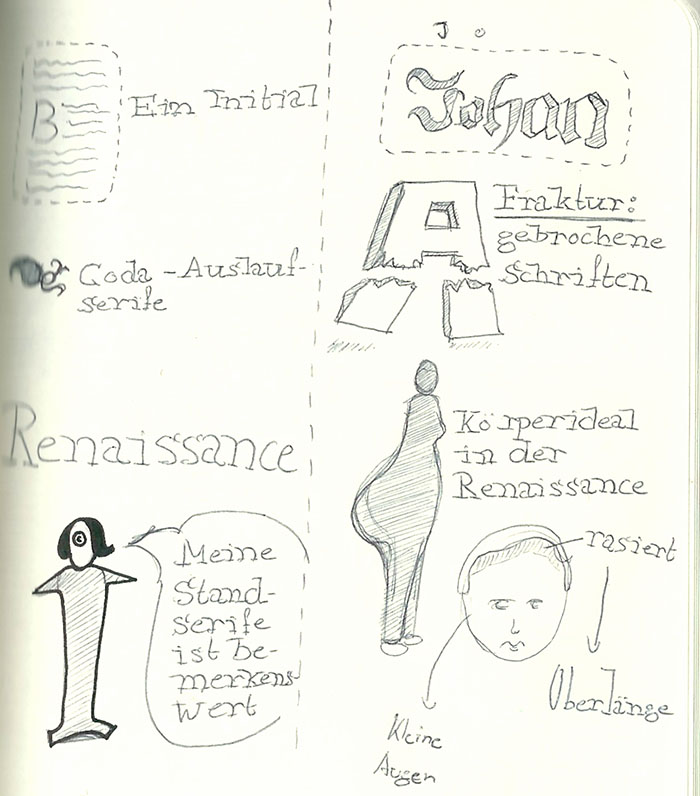 B
Ein Initial
Coda - Auslauf-
serife
Renaissance
Meine
Stand-
serife
ist be-
merkens
wert
J o
Johan
A
Fraktur:
gebrochene
Schriften
Körperideal
in der
Renaissance
rasiert
Oberlänge
Kleine
Augen